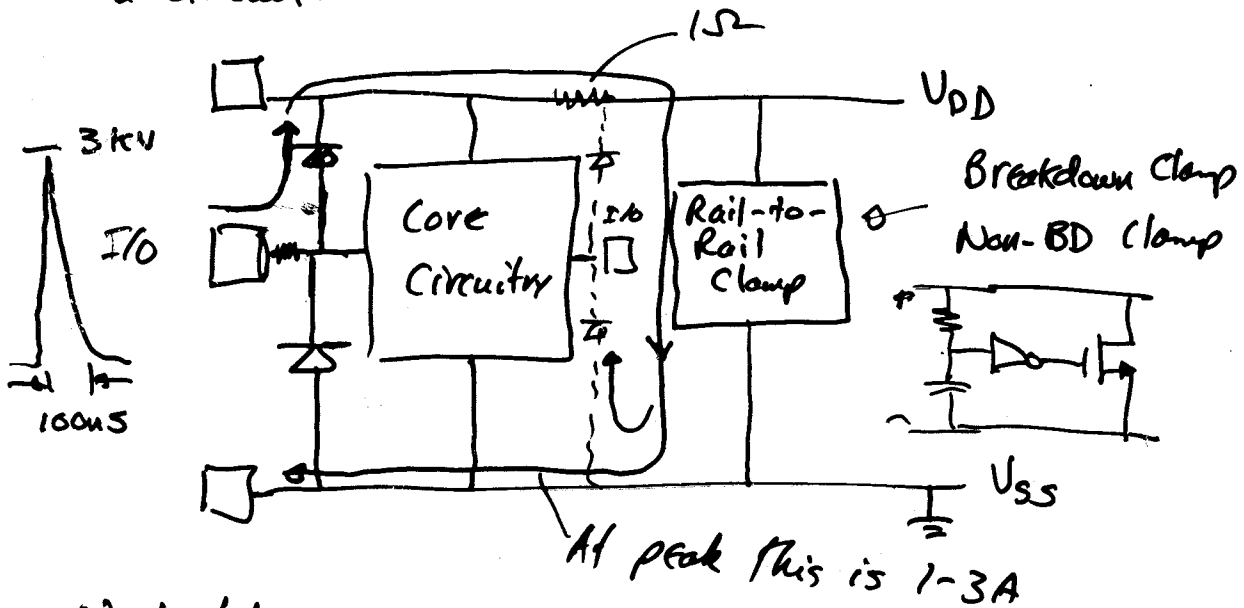 1Ω
VDD
3KV
I/O
Core
Circuitry
I/O
Rail-to-
Rail
Clamp
Breakdown Clamp
Non-BD Clamp
100nS
VSS
At peak this is 1-3A